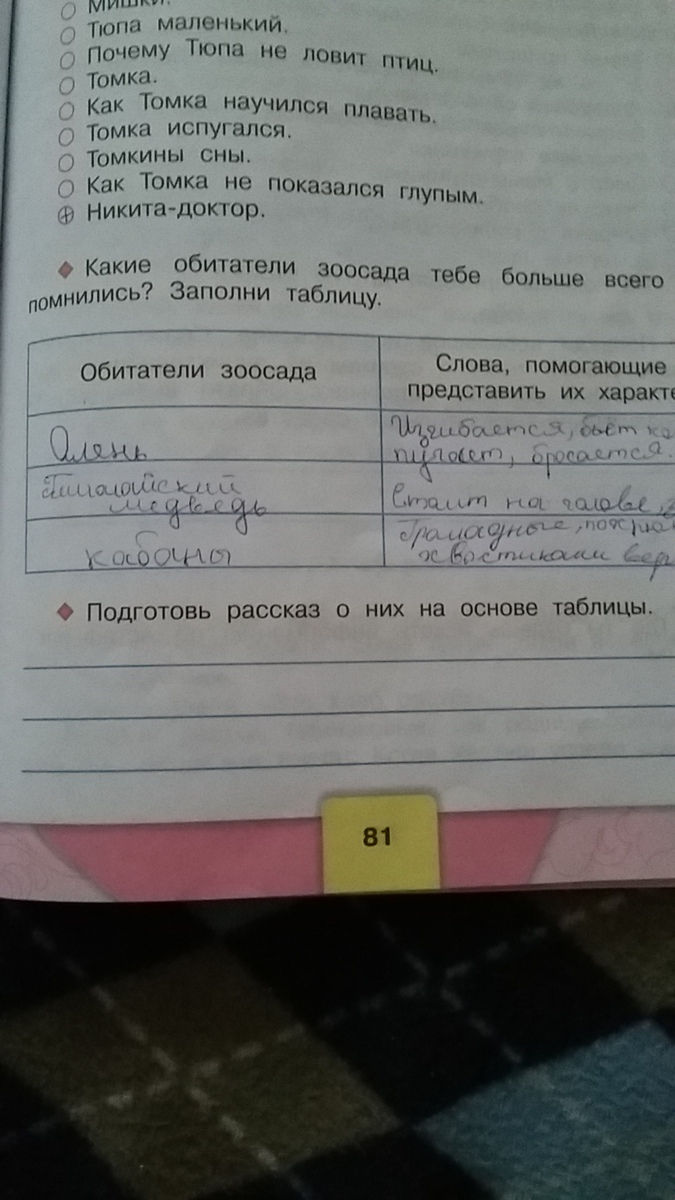 Мишки.
Тюпа маленький.
Почему Тюпа не ловит птиц.
Томка.
Как Томка научился плавать.
Томка испугался.
Томкины сны.
Как Томка не показался глупым.
Никита-доктор.
Какие обитатели зоосада тебе больше всего
помнились? Заполни таблицу.
Обитатели зоосада
Слова, помогающие
представить их характе
Олень
Изгибается, бьёт
пугает, бросается.
Гималайский
медведь
Стаит на галове,
кабаны
Грамадные,
хвостиками вер
Подготовь рассказ о них на основе таблицы.
81